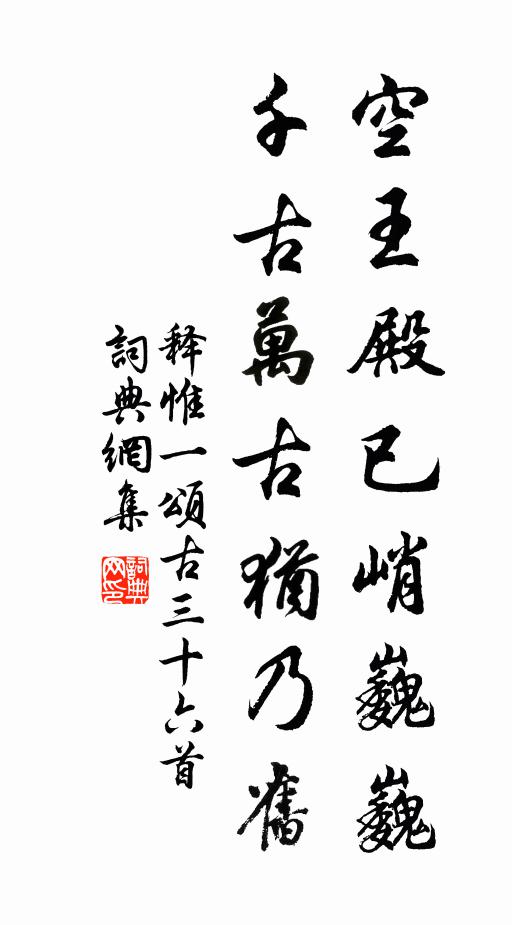 空王殿已峭巍巍
千古萬古猶乃舊
释惟一頌古三十六首
詞典網集
詞典网印